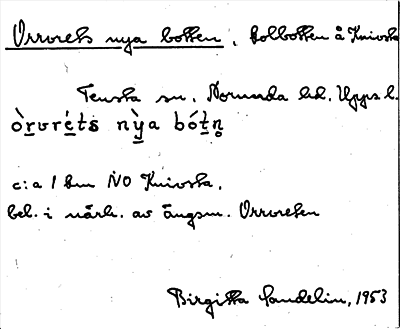 Orrvrets nya botten, Golbotten å Knivsta
Tensta sn. Norunda hd. Upps l.
òrvréts nỳa bótn̥
c:a 1 km NO Knivsta,
bel. i närh. av ängsm. Orrvreten
Birgitta Sandelin, 1953